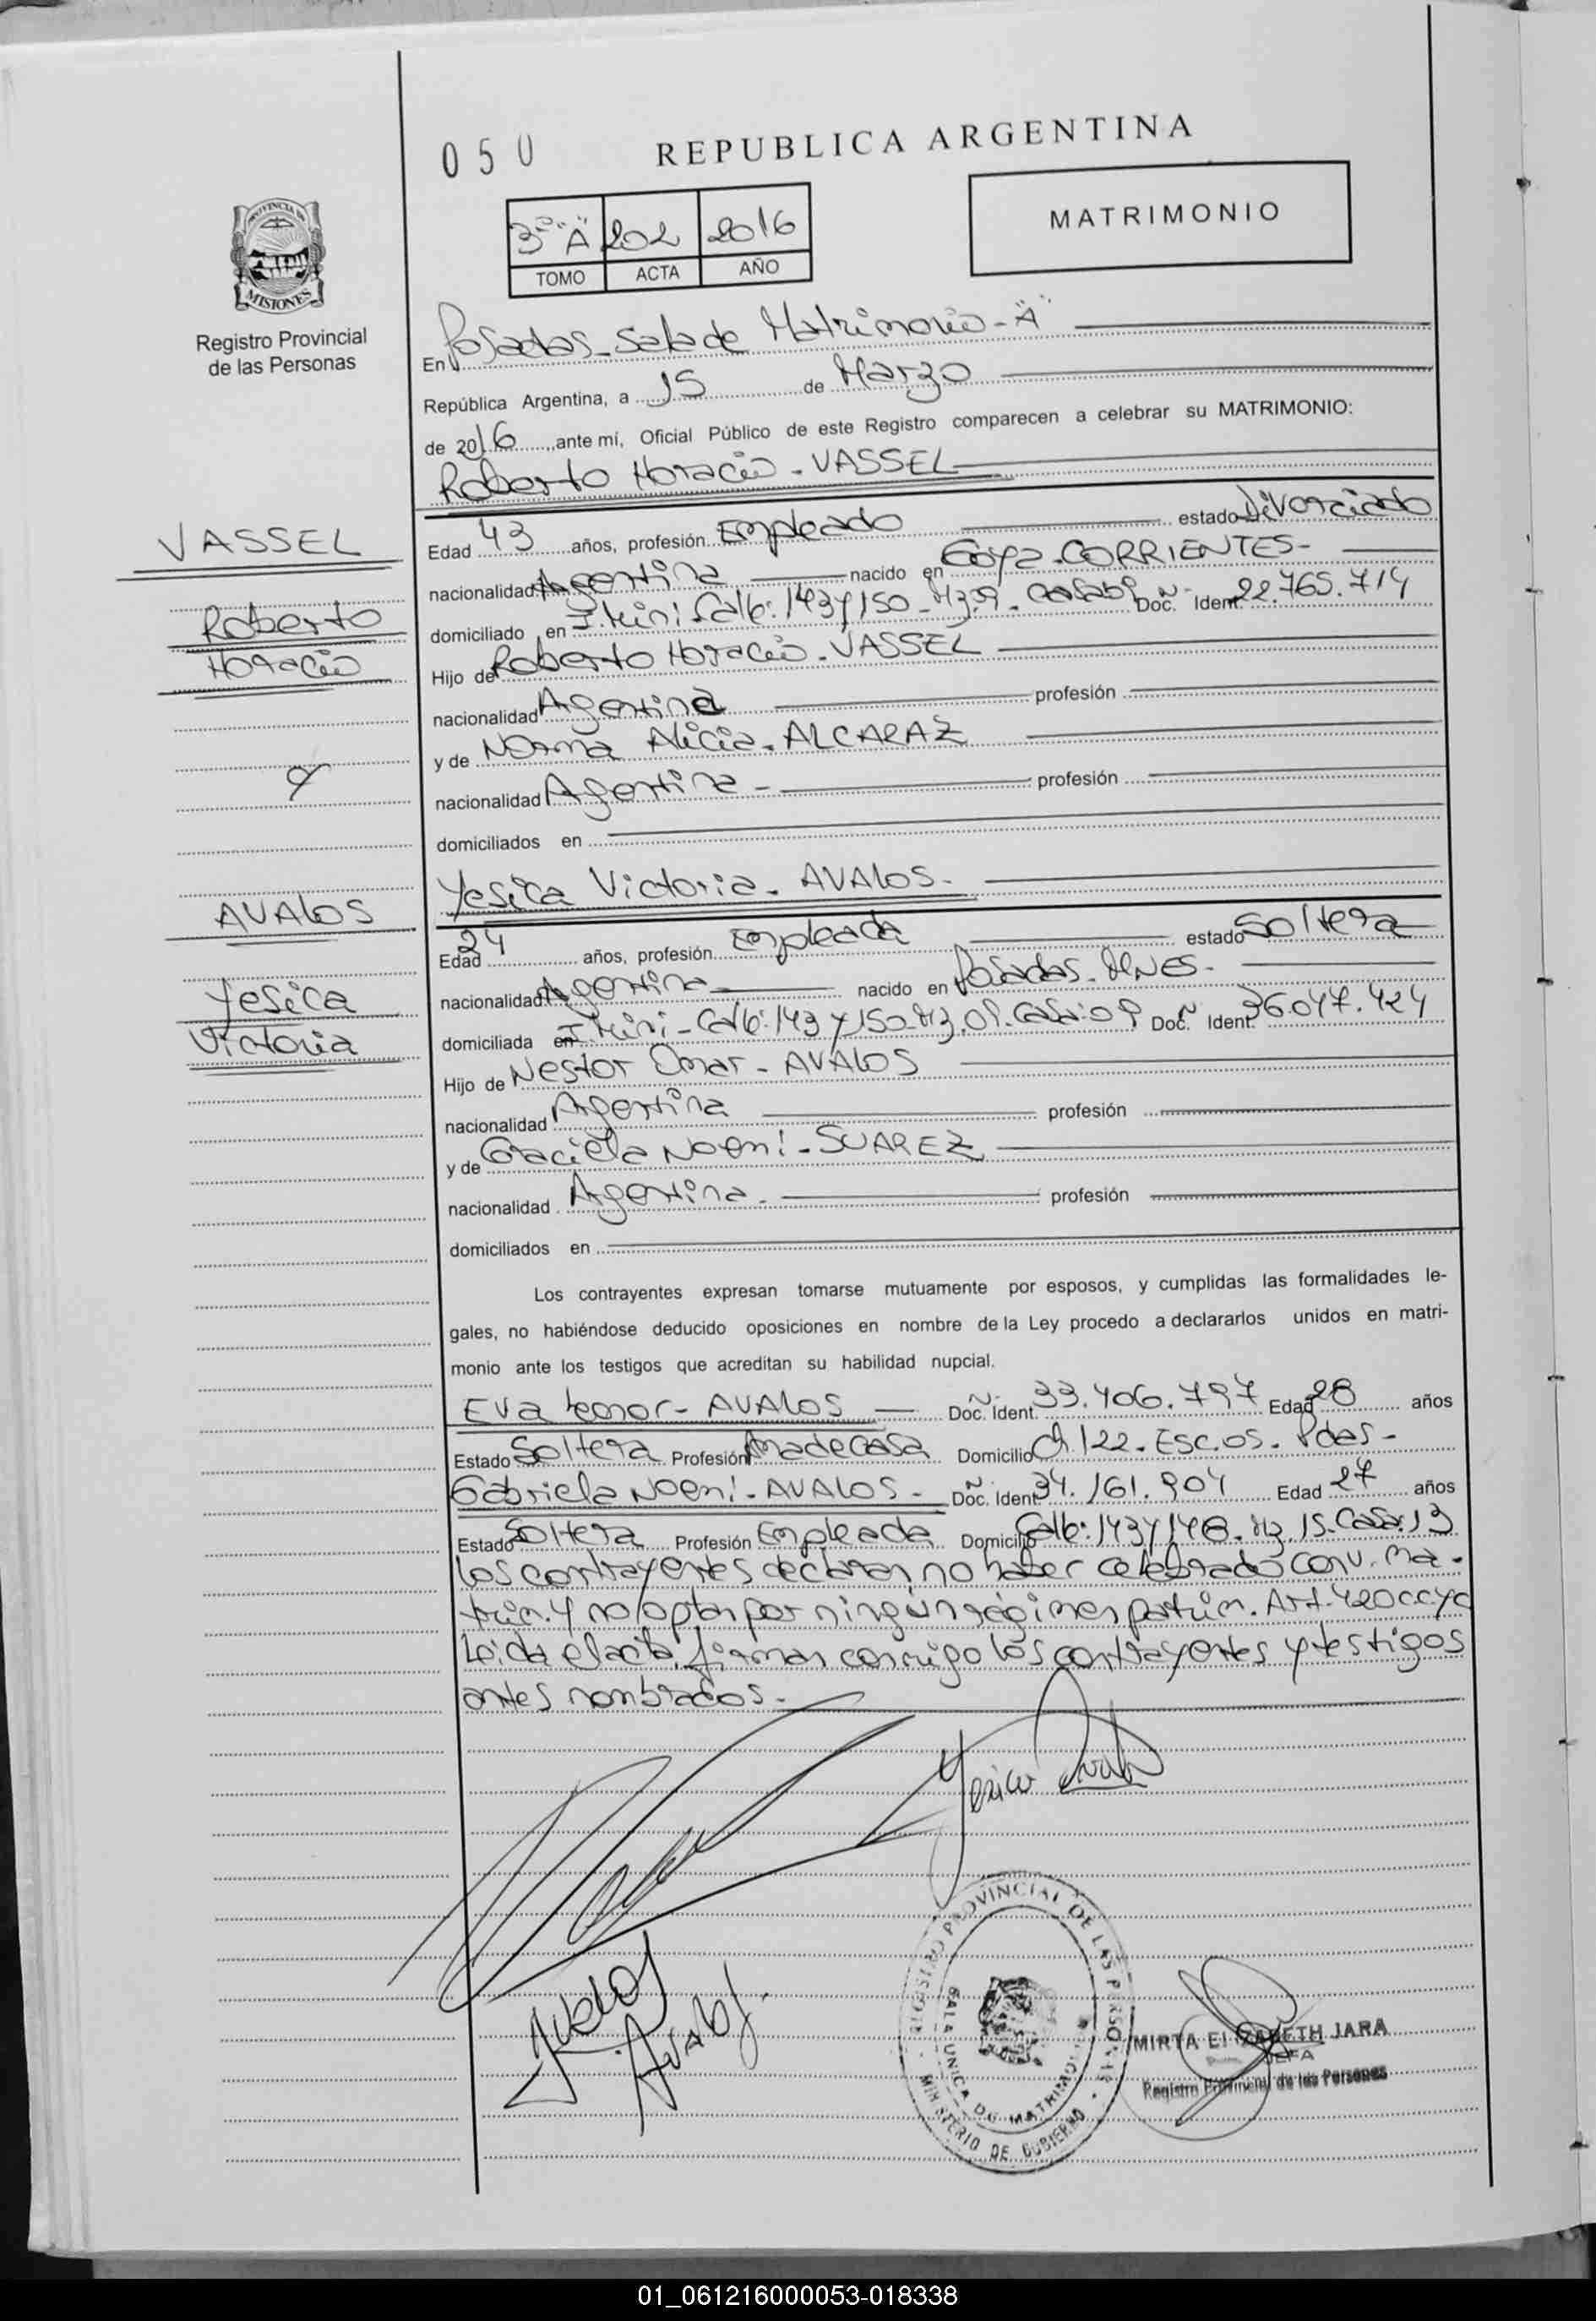 050
REPUBLICA ARGENTINA
PROVINCIA DE
MISIONES
Registro Provincial
de las Personas
3º "A" 202 2016
TOMO ACTA AÑO
MATRIMONIO
En Posadas - Sala de Matrimonio - "A"
República Argentina, a 15 de Marzo
de 2016, ante mí, Oficial Público de este Registro comparecen a celebrar su MATRIMONIO:
Roberto Horacio - VASSEL
VASSEL
Roberto
Horacio
y
AVALOS
Yesica
Victoria
Edad 43 años, profesión Empleado estado Divorciado
nacionalidad Argentina nacido en Goya - CORRIENTES -
domiciliado en I. Mini: Calle: 143 y 150 - Mz. 9 - Casa Doc. Nº Ident. 22.765.714
Hijo de Roberto Horacio - VASSEL
nacionalidad Argentina profesión
y de Norma Alicia - ALCARAZ
nacionalidad Argentina - profesión
domiciliados en
Yesica Victoria - AVALOS -
Edad 24 años, profesión Empleada estado Soltera
nacionalidad Argentina nacido en Posadas - MNES -
domiciliada en I. Mini - Calle: 143 y 150 - Mz. 09 - Casa: 09 Doc. Nº Ident. 36.047.424
Hijo de Nestor Omar - AVALOS
nacionalidad Argentina profesión
y de Graciela Noemi - SUAREZ
nacionalidad Argentina - profesión
domiciliados en
Los contrayentes expresan tomarse mutuamente por esposos, y cumplidas las formalidades le-
gales, no habiéndose deducido oposiciones en nombre de la Ley procedo a declararlos unidos en matri-
monio ante los testigos que acreditan su habilidad nupcial.
Eva Leonor - AVALOS - Doc. Nº Ident. 33.406.797 Edad 28 años
Estado Soltera Profesión Ama de casa Domicilio Ch. 122 - Esc. 05 - Pdas -
Gabriela Noemi - AVALOS - Doc. Nº Ident. 34.161.904 Edad 27 años
Estado Soltera Profesión Empleada Domicilio Calle: 143 y 148 - Mz. 15 - Casa: 13
Los contrayentes declaran no haber celebrado conv. ma-
trim. y no optan por ningún régimen patrim. Art. 420 CCyC
Leída el acta, firman conmigo los contrayentes y testigos
antes nombrados -
Yesica Avalos
Avalos
Avalos
REGISTRO PROVINCIAL DE LAS PERSONAS
SALA UNICA DE MATRIMONIO
MINISTERIO DE GOBIERNO
MIRTA ELIZABETH JARA
JEFA
Registro Provincial de las Personas
01_061216000053-018338